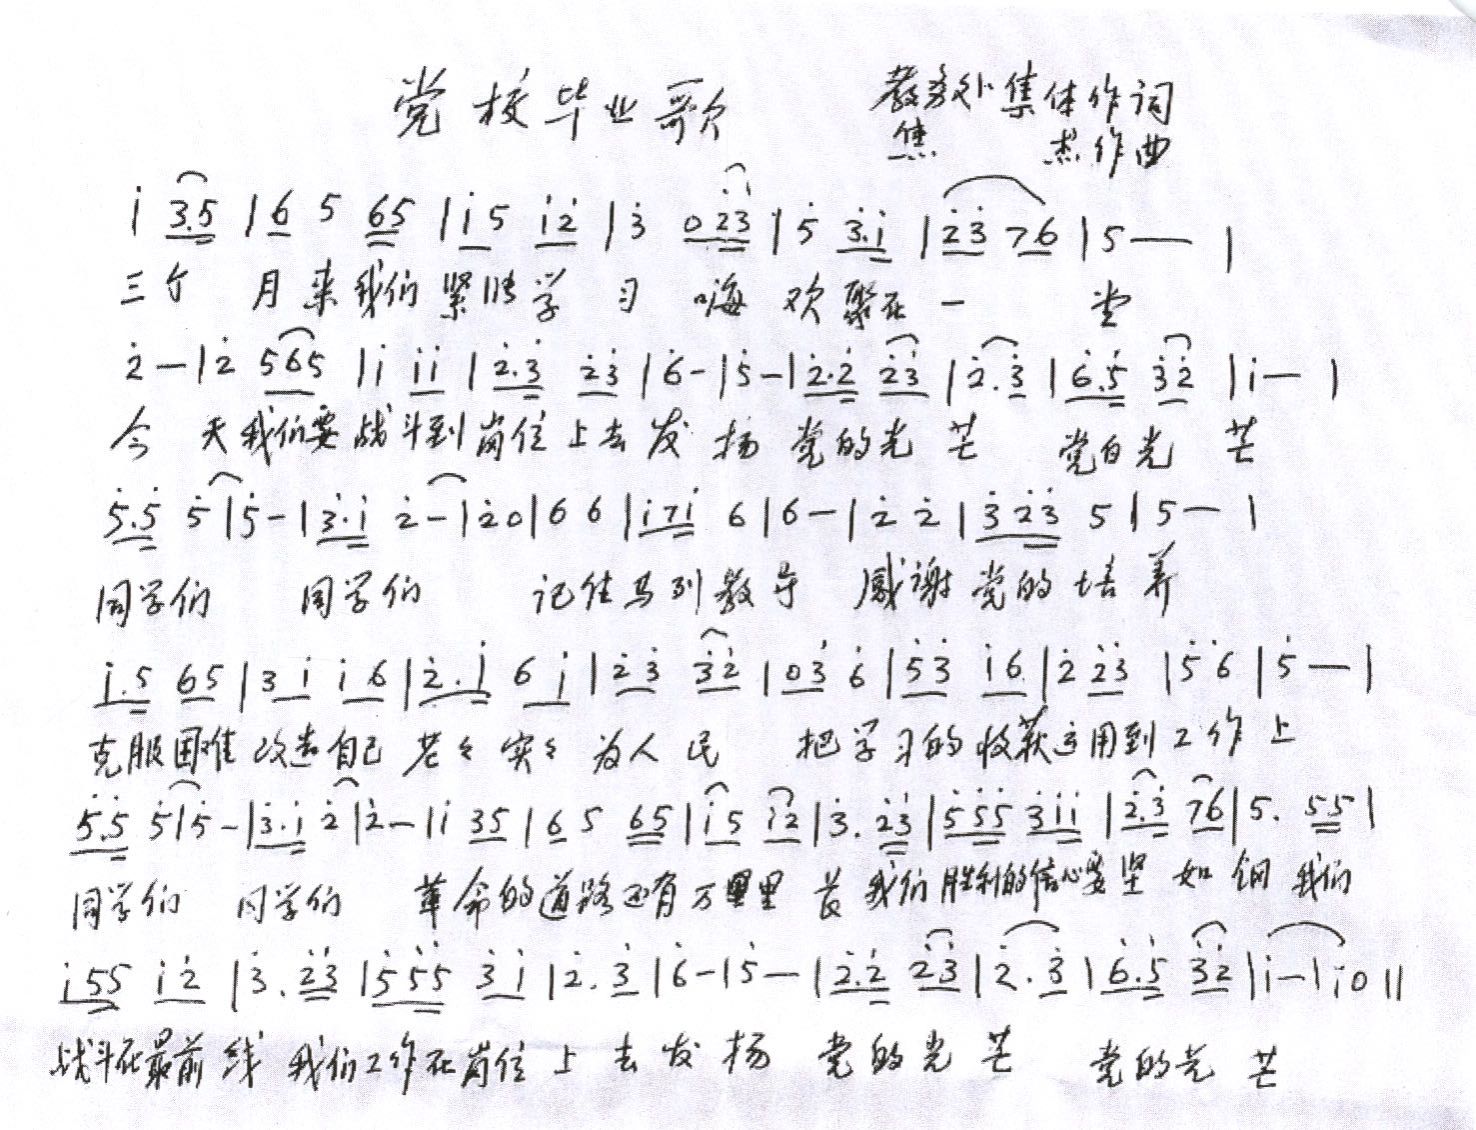 党校毕业歌 教务处集体作词
焦 杰作曲
i 3.5 | 6 5 65 | i5 i2̇ | 3̇ 02̇3̇ | 5̇ 3̇.i | 2̇3̇ 76 | 5 — |
三个 月来我们紧张学 习 嗨 欢聚在一 堂
2̇ — | 2̇ 565 | i ii | 2̇.3̇ 2̇3̇ | 6̇ - | 5̇ - | 2̇.2̇ 2̇3̇ | 2̇.3̇ | 6̇.5̇ 3̇2̇ | i — |
今 天我们要战斗到岗位上去发 扬 党的光 芒 党的光 芒
5̇.5̇ 5̇ | 5̇ - | 3̇.i 2̇ - | 2̇0 | 6 6 | i7i 6 | 6 — | 2̇ 2̇ | 3̇2̇3̇ 5 | 5 — |
同学们 同学们 记住马列教导 感谢党的培养
i.5 65 | 3i i6 | 2̇.i 6i | 2̇3̇ 3̇2̇ | 03̇ 6̇ | 5̇3̇ i6 | 2̇ 2̇3̇ | 5̇6̇ | 5̇ — |
克服困难改造自己 老々实々为人民 把学习的收获运用到工作上
5̇.5̇ 5̇ | 5̇ - | 3̇.i 2̇ | 2̇ - | i 35 | 6 5 65 | i5 i2̇ | 3̇. 2̇3̇ | 5̇5̇5̇ 3̇ii | 2̇.3̇ 76 | 5. 55 |
同学们 同学们 革命的道路还有万里里长我们胜利的信心要坚如钢我们
i55 i2̇ | 3̇. 2̇3̇ | 5̇5̇5̇ 3̇i | 2̇.3̇ | 6̇ - | 5̇ — | 2̇.2̇ 2̇3̇ | 2̇.3̇ | 6̇.5̇ 3̇2̇ | i - | i0 ||
战斗在最前线 我们工作在岗位上去发扬 党的光芒 党的光 芒